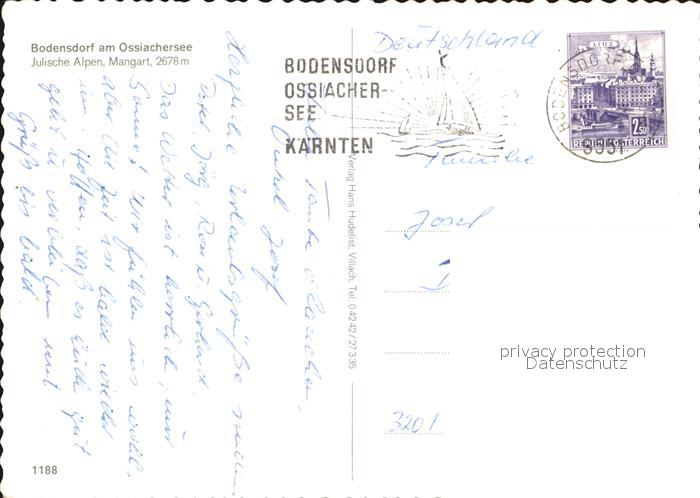 Bodensdorf am Ossiachersee
Julische Alpen, Mangart, 2678 m
Tante
Onkel Josef
Herzliche Urlaubsgrüße
Jörg, Rosi u. Gerhard.
Das Wetter ist herrlich, nur
Sonne! Wir fühlen uns wohl.
aber die Zeit ist bald wieder
um. Hoffen, daß es Euch gut
geht u. verbleiben mit
Gruß bis bald.
1188
Verlag Hans Hudelist, Villach, Tel. 042 42 / 27 3 35
BODENSDORF
OSSIACHER-
SEE
KÄRNTEN
LINZ
2.50
REPUBLIK ÖSTERREICH
BODENSDORF
9551
Deutschland
Familie
Josef
3201
privacy protection
Datenschutz